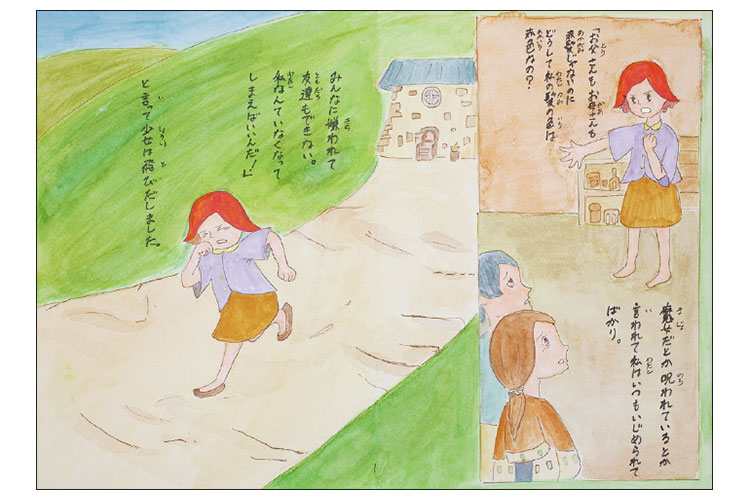 「お父さんもお母さんも
赤髪じゃないのに
どうして私の髪の色は
赤色なの？
魔女だとか呪われているとか
言われて私はいつもいじめられて
ばかり。
みんなに嫌われて
友達もできない。
私なんていなくなって
しまえばいいんだ！」
と言って少女は飛びだしました。